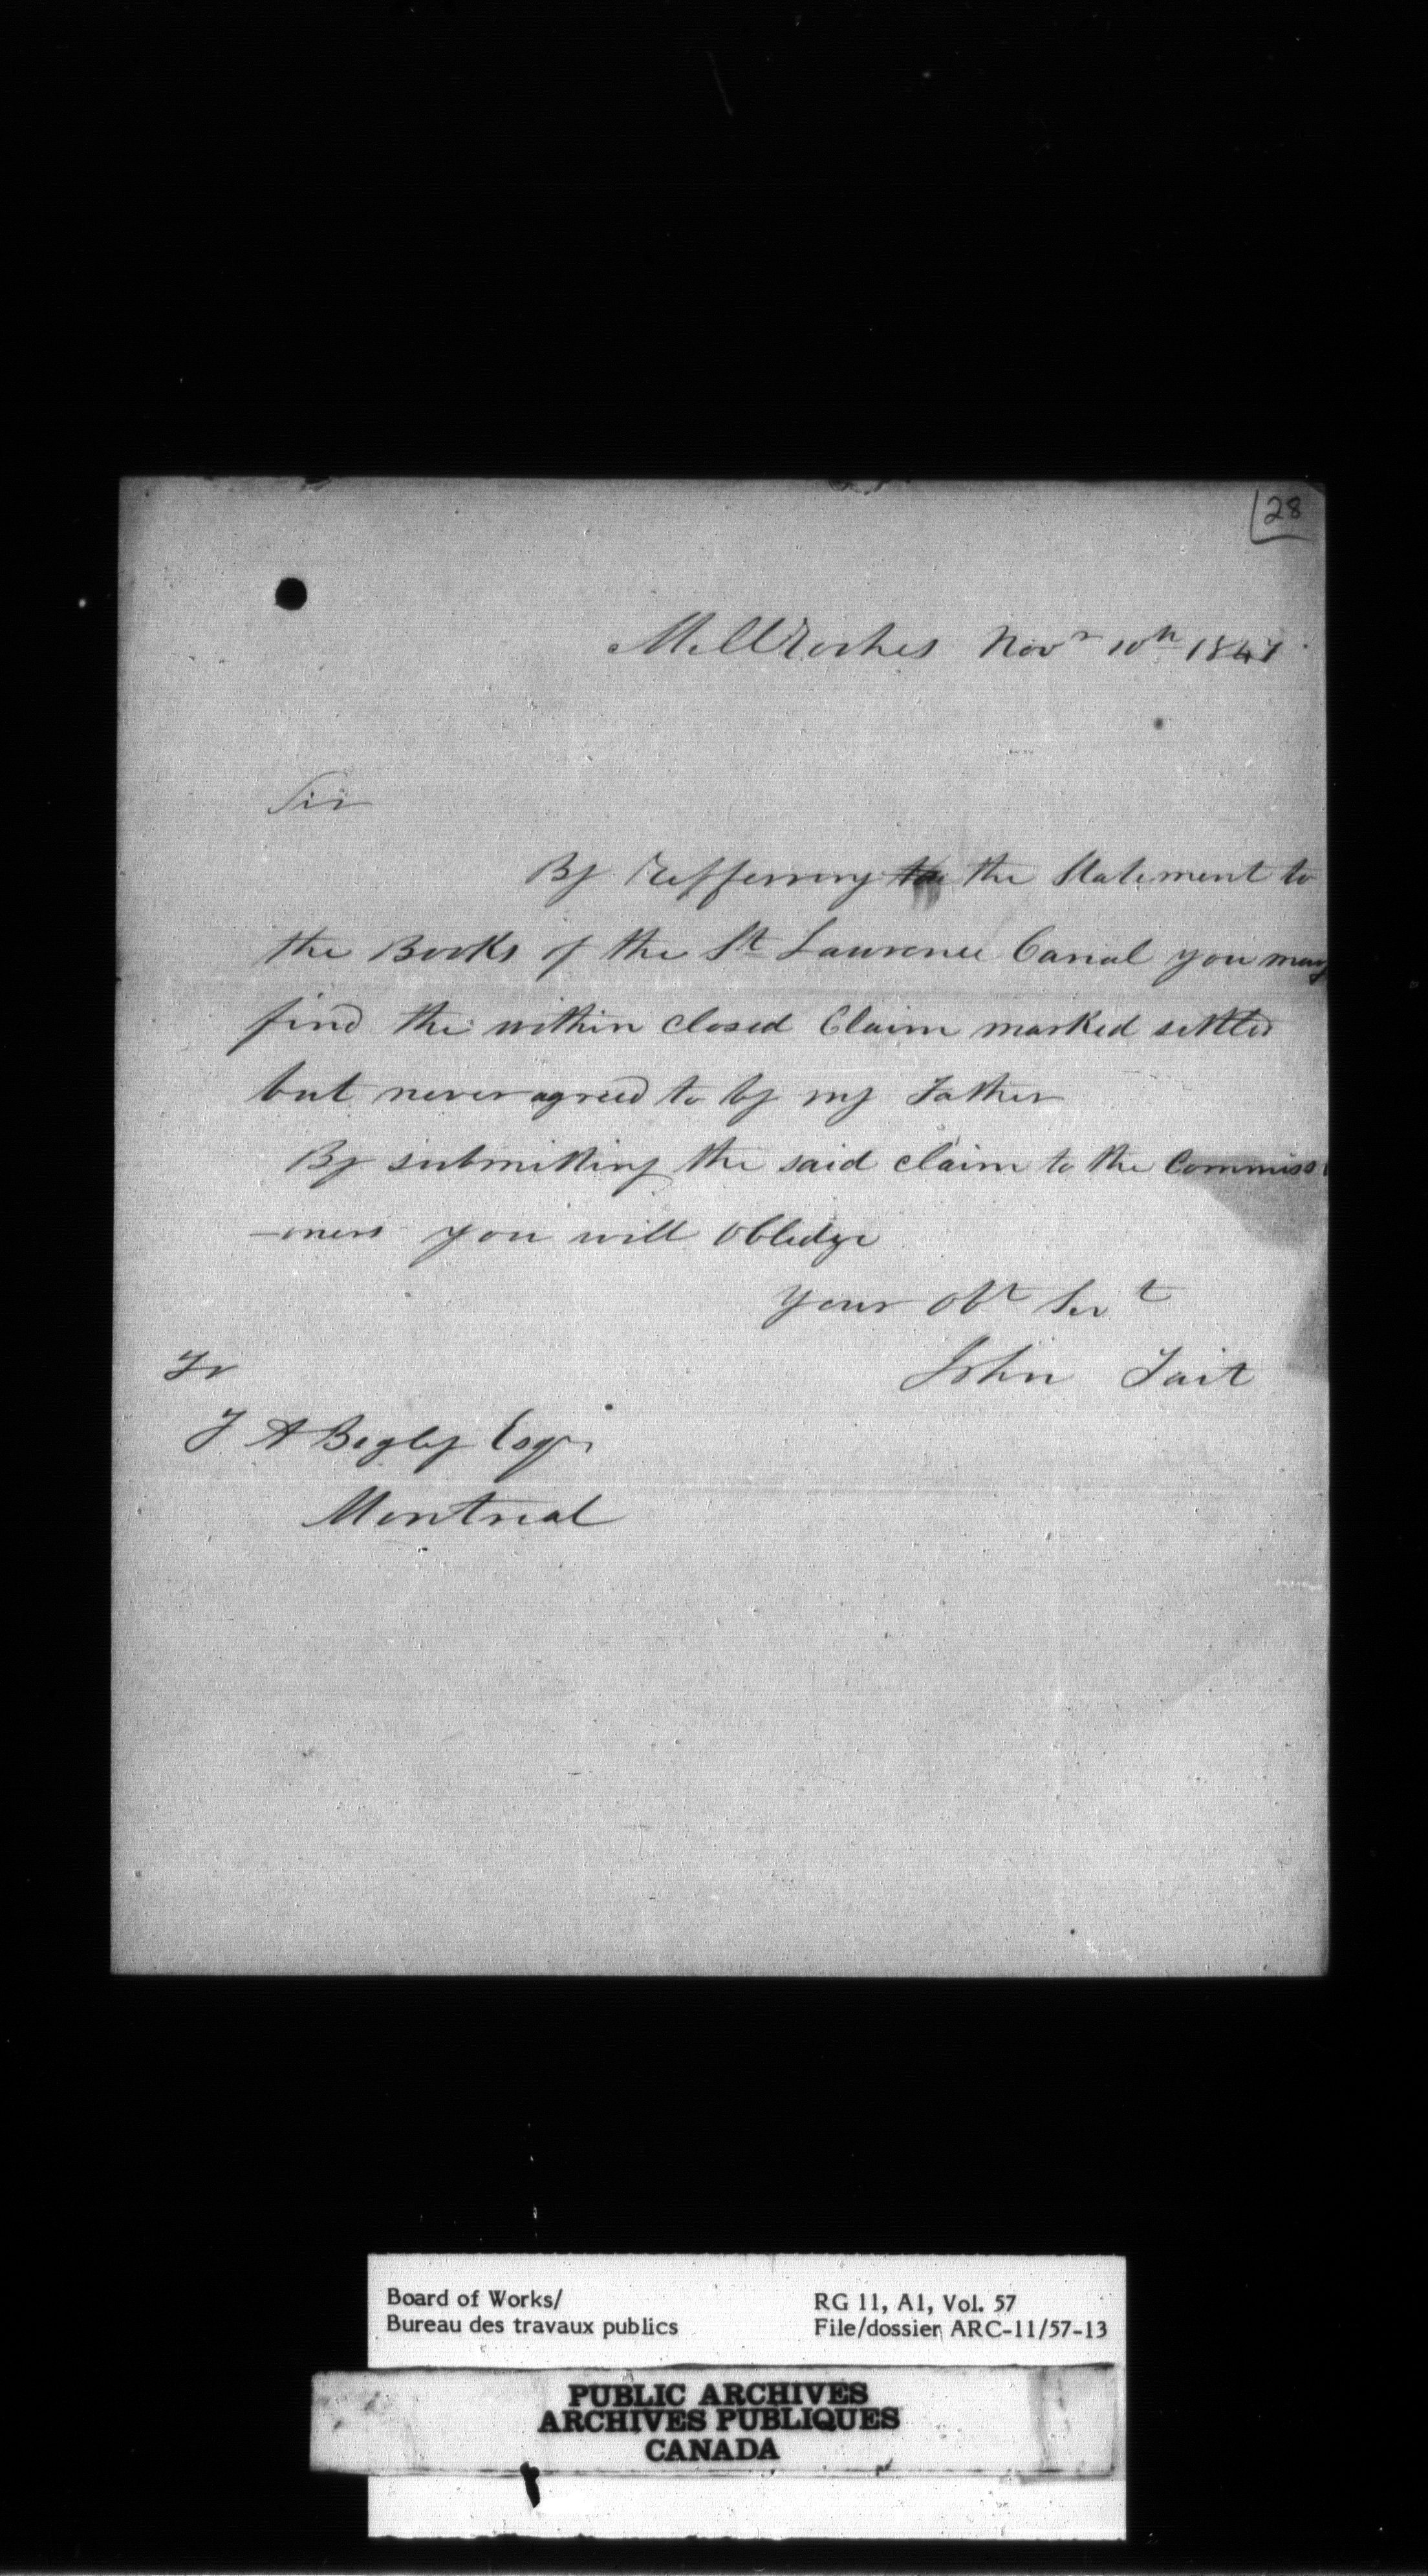 28
MillRoches Novr 10th 1847
Sir
By Refferring the Statement to
the Books of the St Lawrence Canal you may
find the within closed Claim marked settled
but never agreed to by my Father
By submitting the said claim to the Commissi
-oners you will Obledge
Your Obt Servt
John Tait
To
T A Begly Esqr
Montreal
Board of Works/
Bureau des travaux publics
RG 11, A1, Vol. 57
File/dossier ARC-11/57-13
PUBLIC ARCHIVES
ARCHIVES PUBLIQUES
CANADA